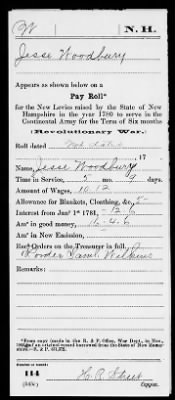 W N. H.
Jesse Woodbury
Appears as shown below on a
Pay Roll*
for the New Levies raised by the State of New
Hampshire in the year 1780 to serve in the
Continental Army for the Term of Six months
(Revolutionary War.)
Roll dated Not dated
, 17
Name, Jesse Woodbury
Time in Service, 5 mo. 9 days.
Amount of Wages, 10.12
Allowance for Blankets, Clothing, &c,
Interest from Jan'y 1st 1781, 12.6
Am't in good money, 16.4.6
Am't in New Emission,
Rec'd Orders on the Treasurer in full,
Saml. Wilkins
Remarks:
*From copy (made in the R. & P. Office, War Dept., in Nov.
of an original record borrowed from the State of New Hampshire—R. & P.
114
H. R. Street
Copyist.